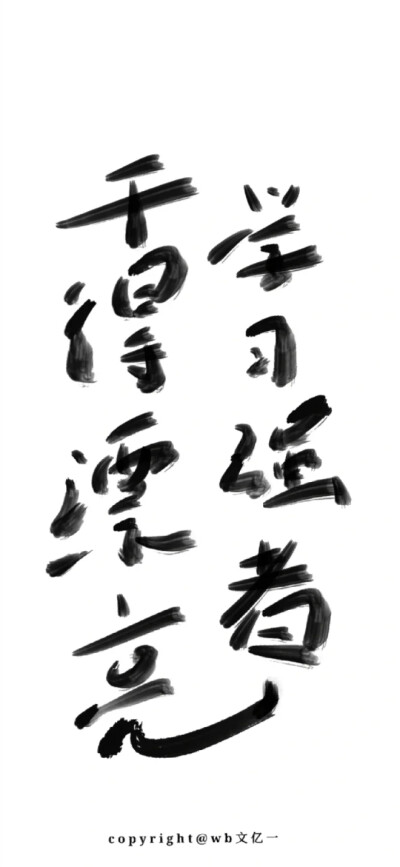 学习强者
干得漂亮
copyright@wb文亿一